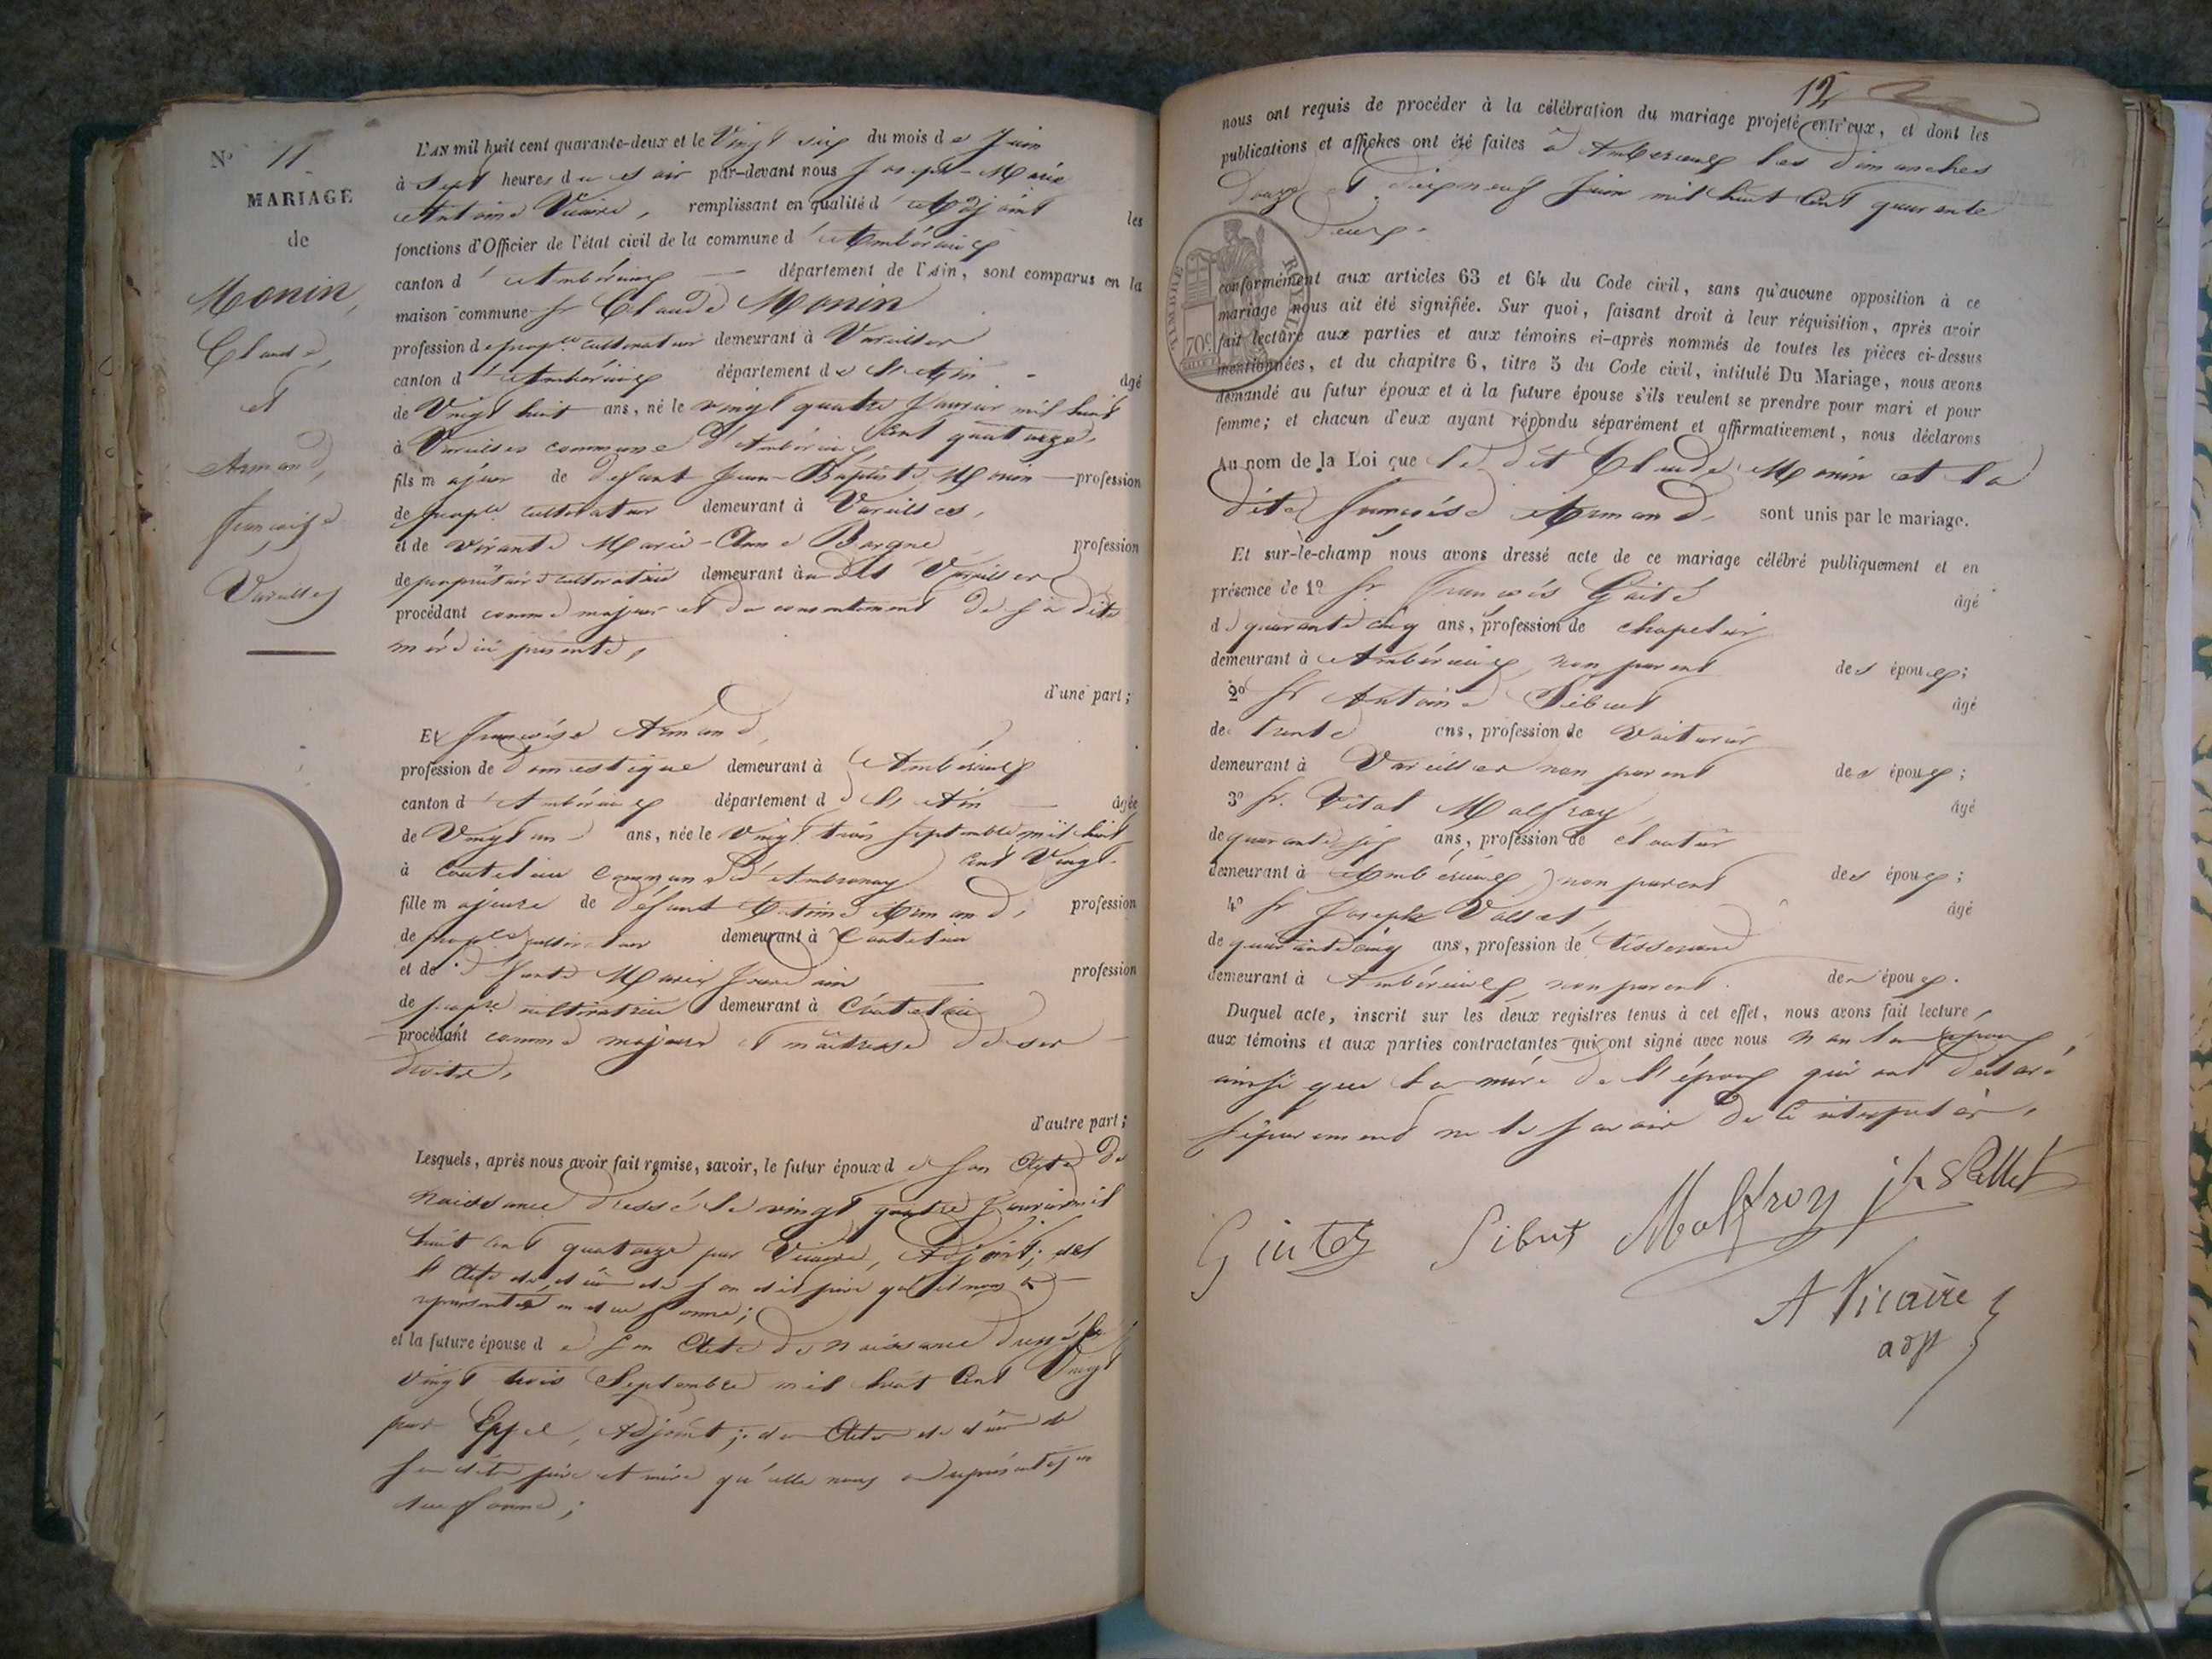 Nº 11
MARIAGE
de
Monin,
Claude,
et
Armand,
Françoise
Vareilles
L'AN mil huit cent quarante-deux et le Vingt six du mois de Juin
à Sept heures du soir par-devant nous Joseph-Marie
Antoine Vicaire, remplissant en qualité d'Adjoint les
fonctions d'Officier de l'état civil de la commune d'Ambérieux
canton d'Ambérieux département de l'Ain, sont comparus en la
maison commune Sr Claude Monin
profession de propre cultivateur demeurant à Vareilles
canton d'Ambérieux département de l'Ain âgé
de Vingt huit ans, né le vingt quatre Janvier mil huit
cent quatorze,
à Vareilles commune d'Ambérieux
fils majeur de défunt Jean-Baptiste Monin profession
de propre cultivateur demeurant à Vareilles,
et de vivante Marie-Anne Borgne profession
de propriétaire cultivatrice demeurant au dit Vareilles
procédant comme majeur et du consentement de sa dite
mère ici présente,
d'une part;
Et Françoise Armand,
profession de domestique demeurant à Ambérieux
canton d'Ambérieux département de l'Ain âgée
de Vingt un ans, née le Vingt trois Septembre mil huit
cent Vingt
à Coutelieu commune d'Ambronay
fille majeure de défunt Armand, profession
de propre cultivateur demeurant à Coutelieu
et de défunte Marie Jourdain profession
de propre cultivatrice demeurant à Coutelieu
procédant comme majeure et maîtresse de ses
droits,
d'autre part;
Lesquels, après nous avoir fait remise, savoir, le futur époux de son Acte de
naissance dressé le vingt quatre Janvier mil
huit cent quatorze par Vicaire, Adjoint; de
l'Acte de décès de son dit père qu'il nous a
représentés en due forme;
et la future épouse de son Acte de naissance dressé le
vingt trois Septembre mil huit Cent Vingt
par Eppel, Adjoint; des Actes de décès de
ses dits père et mère qu'elle nous a représentés en
due forme;
12
nous ont requis de procéder à la célébration du mariage projeté entr'eux, et dont les
publications et affiches ont été faites à Ambérieux les dimanches
douze et dix neuf Juin mil huit Cent quarante
deux.
TIMBRE ROYAL
70c
conformément aux articles 63 et 64 du Code civil, sans qu'aucune opposition à ce
mariage nous ait été signifiée. Sur quoi, faisant droit à leur réquisition, après avoir
fait lecture aux parties et aux témoins ci-après nommés de toutes les pièces ci-dessus
mentionnées, et du chapitre 6, titre 5 du Code civil, intitulé Du Mariage, nous avons
demandé au futur époux et à la future épouse s'ils veulent se prendre pour mari et pour
femme; et chacun d'eux ayant répondu séparément et affirmativement, nous déclarons
Au nom de la Loi que le dit Claude Monin et la
dite Françoise Armand, sont unis par le mariage.
Et sur-le-champ nous avons dressé acte de ce mariage célébré publiquement et en
présence de 1º Sr François âgé
de quarante cinq ans, profession de chapelier
demeurant à Ambérieux, non parent des époux;
2º Sr Antoine Sibuet âgé
de trente ans, profession de Voiturier
demeurant à Vareilles non parent des époux;
3º Sr. Vital Malfroy, âgé
de quarante six ans, profession de cloutier
demeurant à Ambérieux, non parent des époux;
4º Sr Joseph Vallet, âgé
de quarante cinq ans, profession de tisserand
demeurant à Ambérieux, non parent des époux.
Duquel acte, inscrit sur les deux registres tenus à cet effet, nous avons fait lecture,
aux témoins et aux parties contractantes qui ont signé avec nous non les époux
ainsi que la mère de l'époux qui ont déclaré
séparément ne le savoir de ce interpellés.
Sibut Malfroy jh Vallet
A Vicaire
adjt